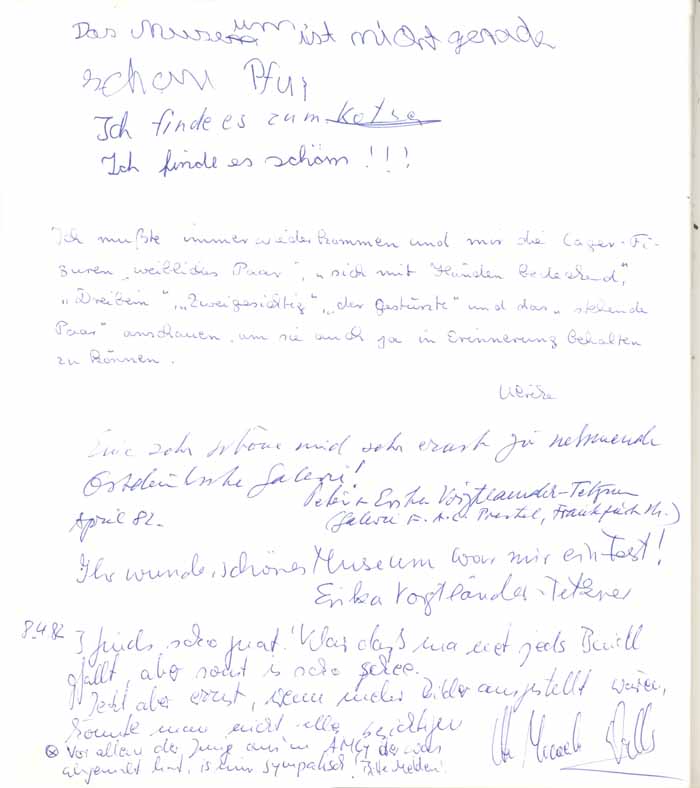 Das Museum ist nicht gerade
schön Pfui
Ich finde es zum Kotze
Ich finde es schöm!!!
Ich mußte immer wieder kommen und mir die Lager-Fi-
guren „weibliches Paar", „sich mit Händen bedeckend",
„Dreibein", „Zweigesichtig", „der Gestürzte" und das „stehende
Paar" anschauen, um sie auch ja in Erinnerung behalten
zu können.
Ulrike
Eine sehr schöne und sehr ernst zu nehmende
Ostdeutsche Galerie!
Peter + Erika Voigtlaender-Tetzner
April 82.
(Galerie F.A.C. Prestel, Frankfurt M.)
Ihr wunderschönes Museum war mir ein Fest!
Erika Voigtländer-Tetzner
8.4.82 I finds scho guat! Klar daß ma net jeds
gfallt, aber sonst is scho schee.
Jetzt aber ernst, wenn mehr Bilder ausgestellt wären,
könnte man nicht alle besichtigen
Vor allem der Junge aus'm der was
is mir sympatisch! Bitte melden!